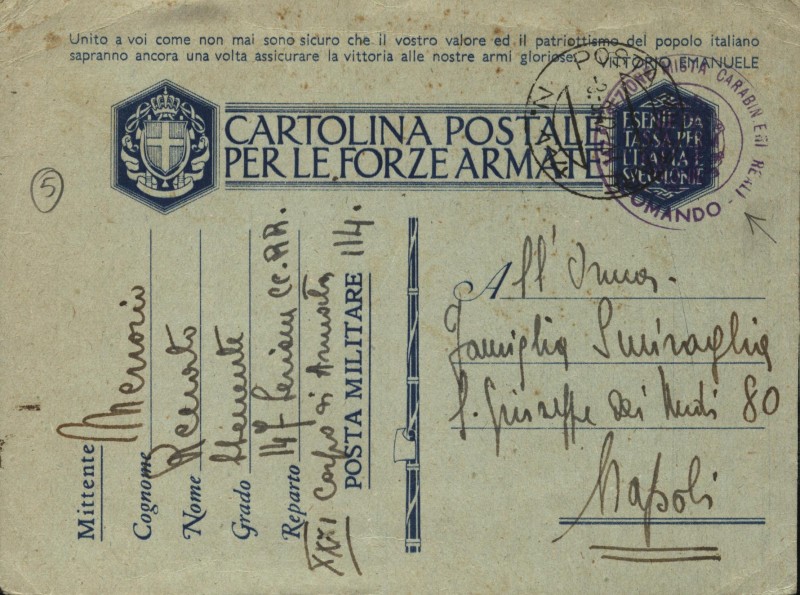 Unito a voi come non mai sono sicuro che il vostro valore ed il patriottismo del popolo italiano
sapranno ancora una volta assicurare la vittoria alle nostre armi gloriose. VITTORIO EMANUELE
CARTOLINA POSTALE
PER LE FORZE ARMATE
ESENTE DA
TASSA PER
L'ITALIA E
MISTA CARABINIERI REALI - COMANDO -
POS
5
Mittente
Cognome
Nome Renato
Grado
Reparto 14ª CC.RR.
XXXI Corpo di Armata
POSTA MILITARE 114.
All'
Famiglia Smiraglia
S. Giuseppe dei Nudi 80
Napoli